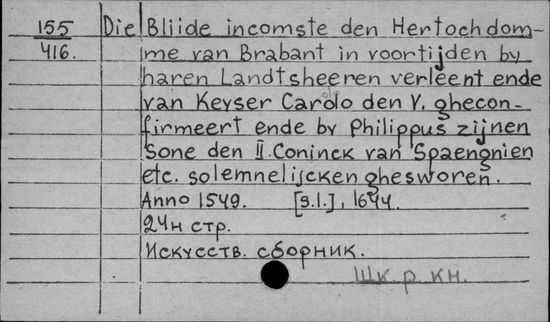 155 Die Bliide incomste den Hertochdom-
416. me van Brabant in voortijden by
haren Landtsheeren verleent ende
van Keyser Carolo den V. ghecon-
firmeert ende by Philippus zijnen
Sone den II. Coninck van Spaengnien
etc. solemnelijcken ghesworen.
Anno 1549. [s.l.], 1644.
24н стр.
Искусств. сборник.
Шк. р. кн.